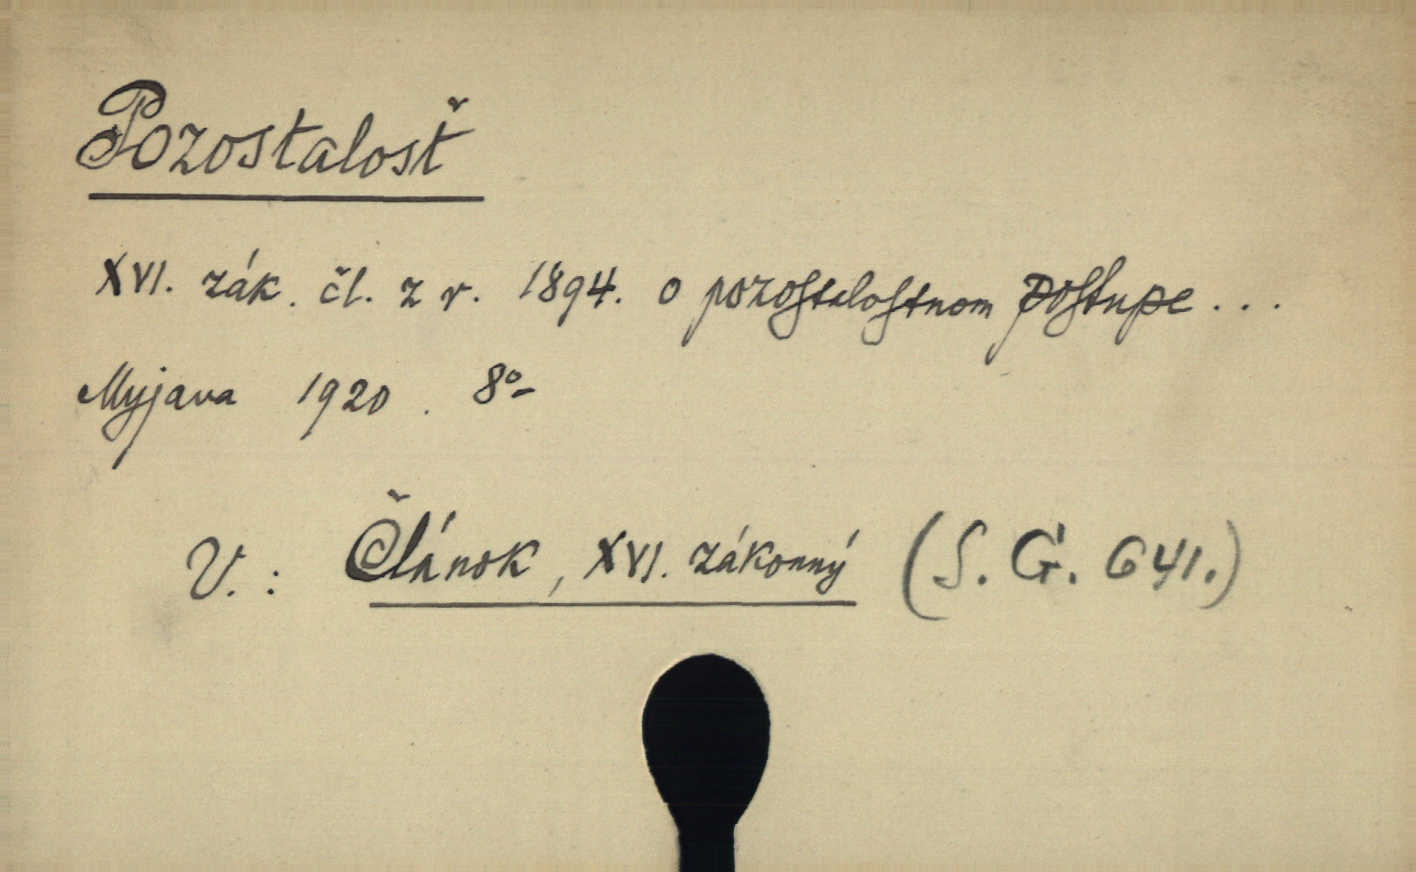 Pozostalosť
XVI. zák. čl. z r. 1894. o pozostalostnom postupe ...
Myjava 1920. 8°-
V.: Článok, XVI. zákonný (S. G. 641.)